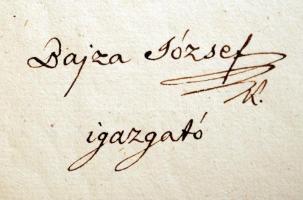 Bajza József
K.
igazgató